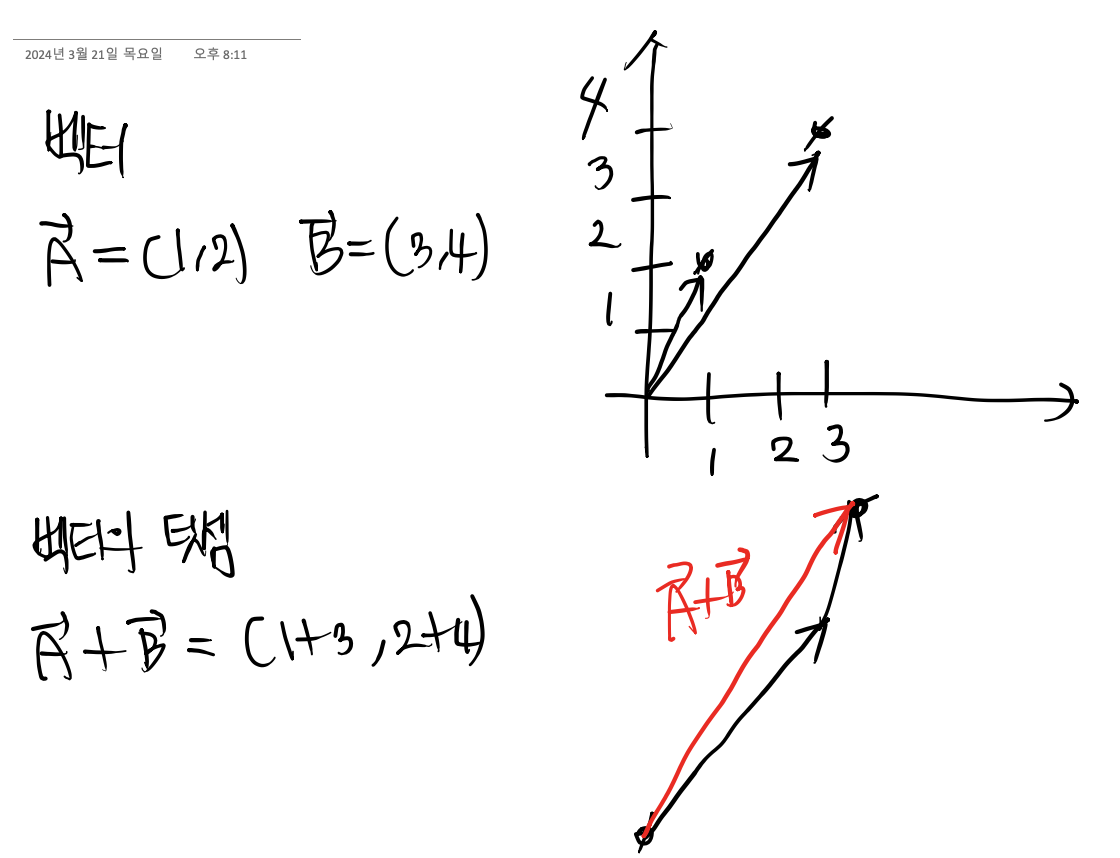 2024년 3월 21일 목요일 오후 8:11
벡터
A⃗ = (1,2) B⃗ = (3,4)
4
3
2
1
1 2 3
벡터의 덧셈
A⃗ + B⃗ = (1+3, 2+4)
A⃗+B⃗